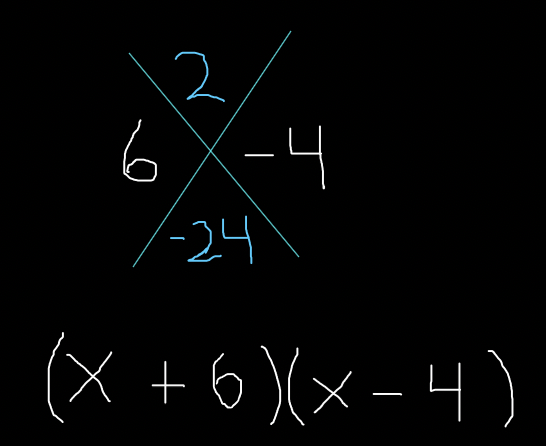 2
6 -4
-24
(x + 6)(x - 4)